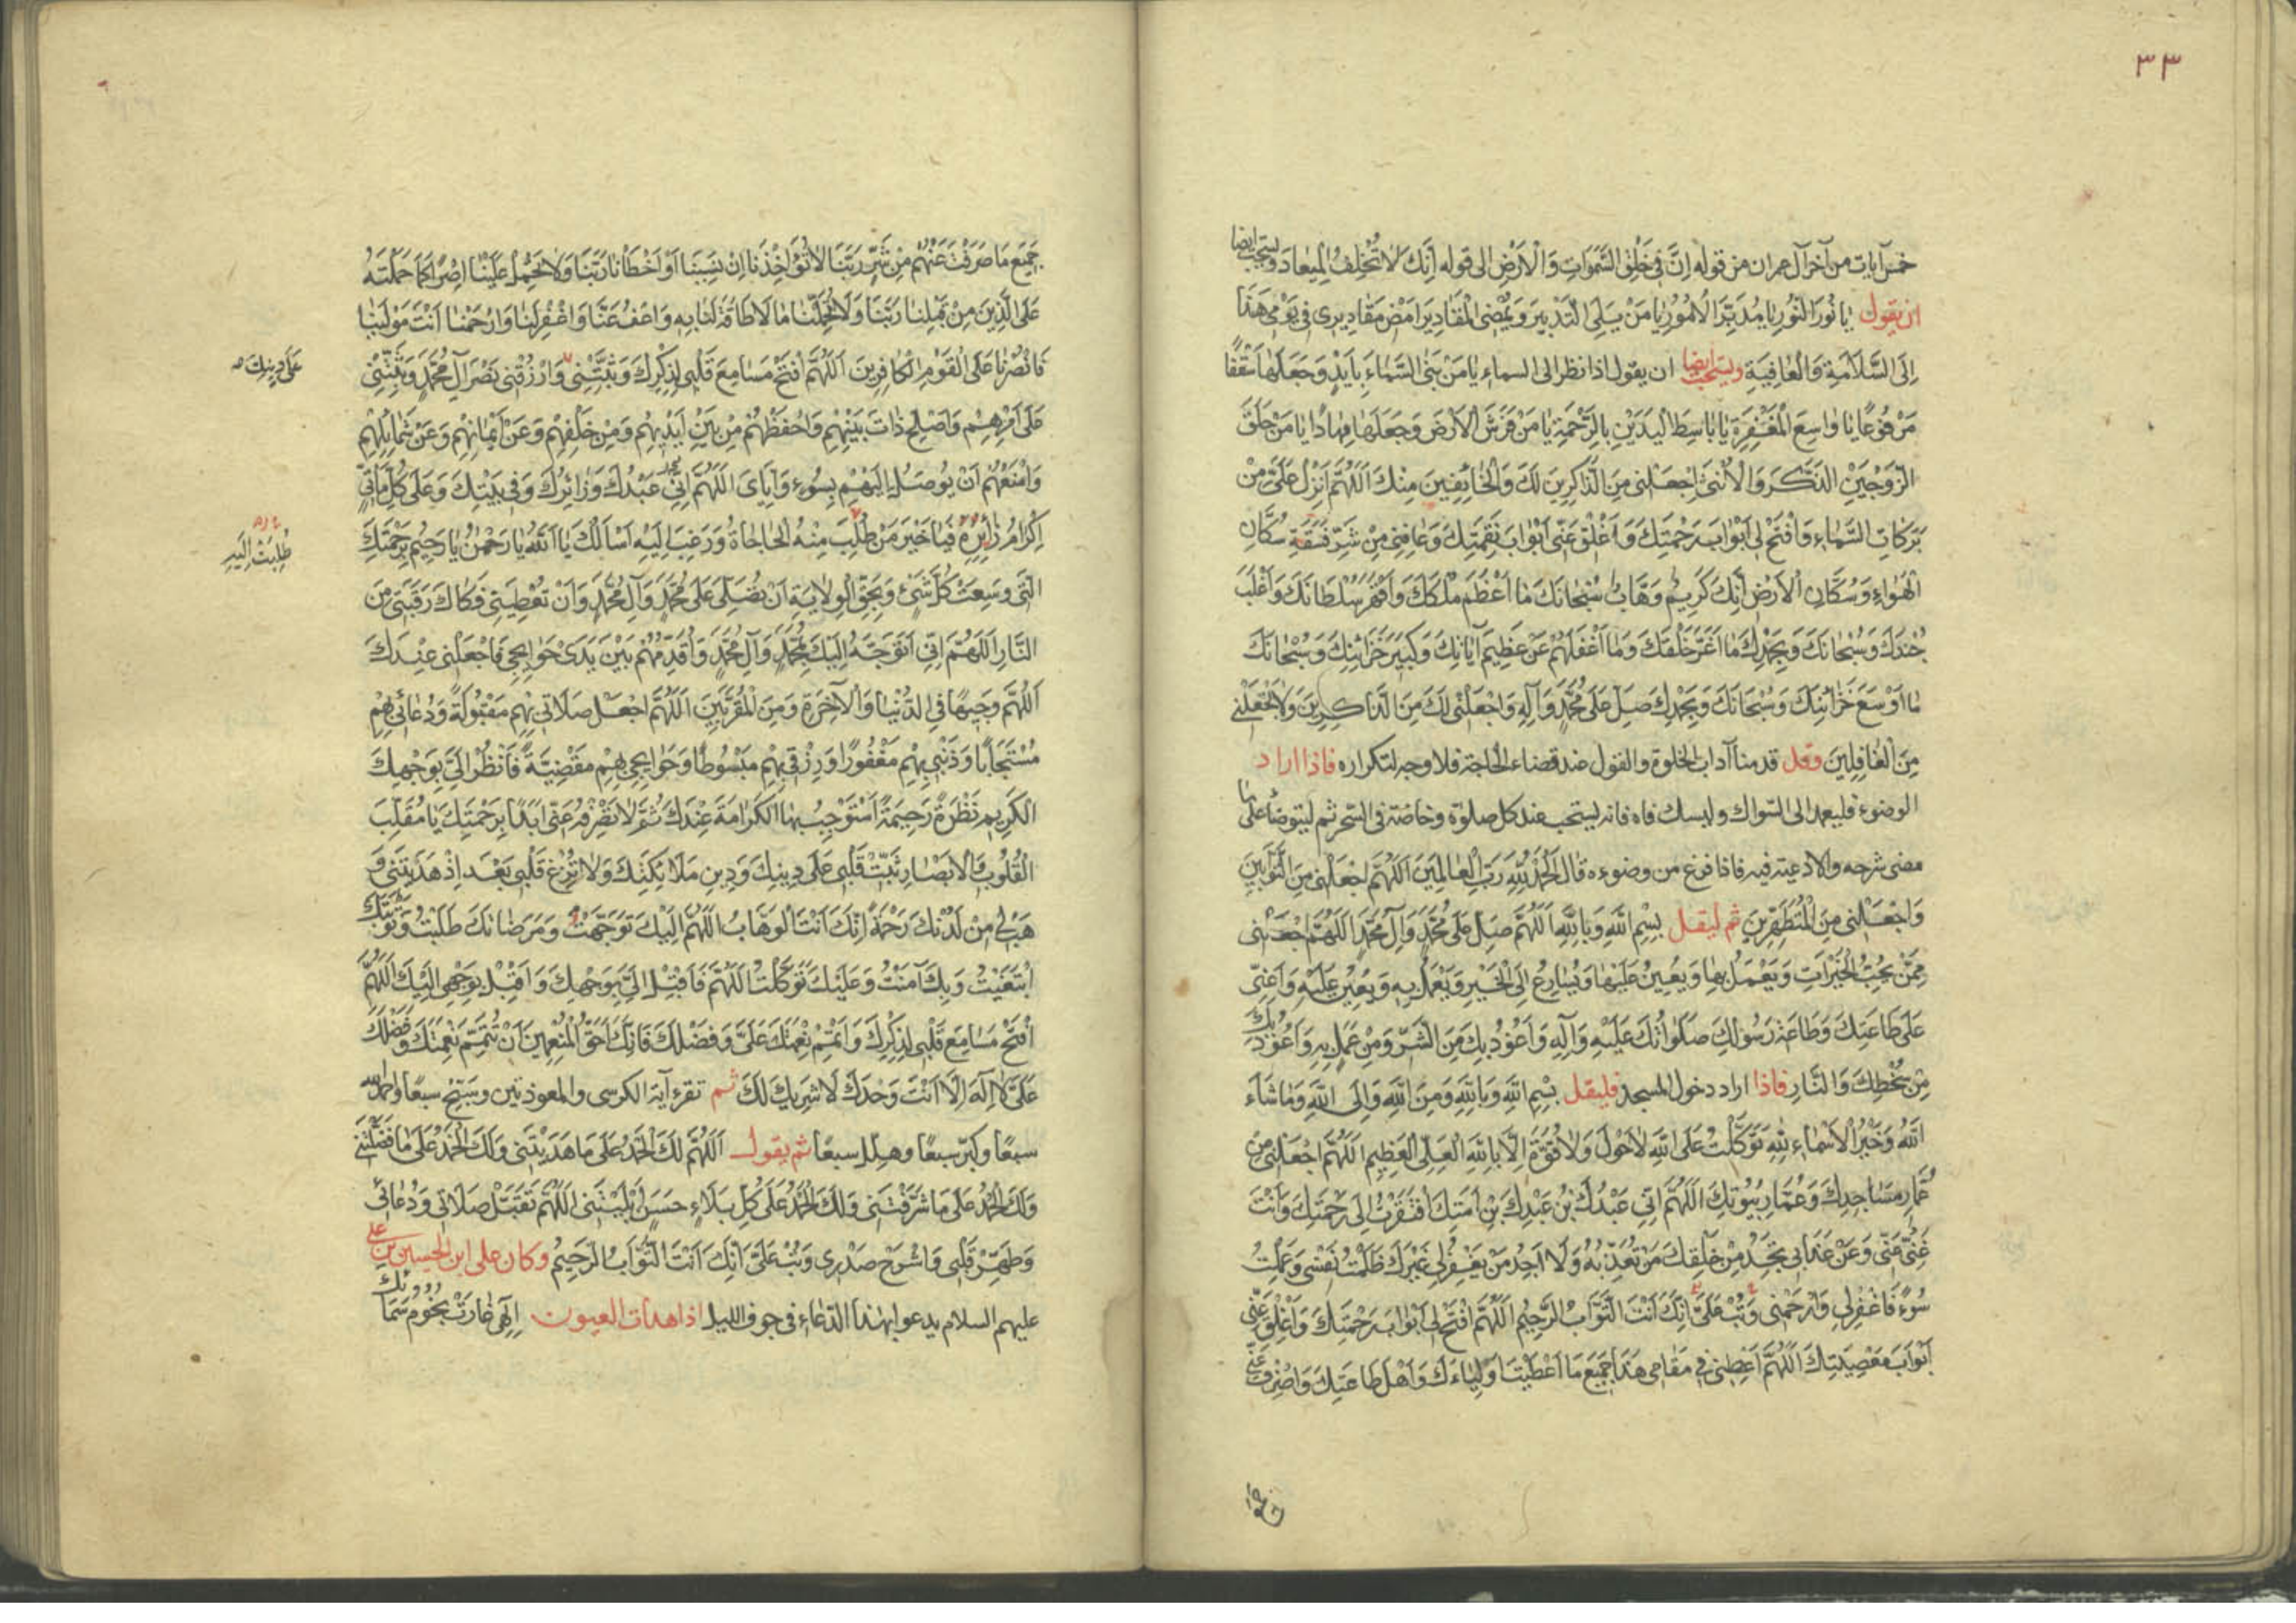 ٣٣
خمس آيات من آخر آل عمران من قوله إنَّ فِي خَلْقِ السَّمٰوَاتِ وَالْاَرْضِ الى قوله إنَّكَ لَا تُخْلِفُ الْمِيعَادَ ويستحب ايضا
ان يقول يَا نُورَ النُّورِ يَا مُدَبِّرَ الْاُمُورِ يَا مَنْ يَلِي التَّدْبِيرَ وَيُمْضِي الْمَقَادِيرَ اَمْضِ مَقَادِيرِي فِي يَوْمِي هَذَا
اِلَى السَّلَامَةِ وَالْعَافِيَةِ ويستحب ايضا ان يقول اذا نظر الى السماء يَا مَنْ بَنَى السَّمَاءَ بِاَيْدٍ وَجَعَلَهَا سَقْفًا
مَرْفُوعًا يَا وَاسِعَ الْمَغْفِرَةِ يَا بَاسِطَ الْيَدَيْنِ بِالرَّحْمَةِ يَا مَنْ فَرَشَ الْاَرْضَ وَجَعَلَهَا مِهَادًا يَا مَنْ خَلَقَ
الزَّوْجَيْنِ الذَّكَرَ وَالْاُنْثَى اِجْعَلْنِي مِنَ الذَّاكِرِينَ لَكَ وَالْخَائِفِينَ مِنْكَ اَللّٰهُمَّ اَنْزِلْ عَلَيَّ مِنْ
بَرَكَاتِ السَّمَاءِ وَافْتَحْ لِي اَبْوَابَ رَحْمَتِكَ وَاَغْلِقْ عَنِّي اَبْوَابَ نَقِمَتِكَ وَعَافِنِي مِنْ شَرِّ فَسَقَةِ سُكَّانِ
الْهَوَاءِ وَسُكَّانِ الْاَرْضِ اِنَّكَ كَرِيمٌ وَهَّابٌ سُبْحَانَكَ مَا اَعْظَمَ مُلْكَكَ وَاَقْهَرَ سُلْطَانَكَ وَاَغْلَبَ
جُنْدَكَ وَسُبْحَانَكَ وَبِحَمْدِكَ مَا اَغَرَّ خَلْقَكَ وَمَا اَغْفَلَهُمْ عَنْ عَظِيمِ آيَاتِكَ وَكَبِيرِ خَزَائِنِكَ وَسُبْحَانَكَ
مَا اَوْسَعَ خَزَائِنَكَ وَسُبْحَانَكَ وَبِحَمْدِكَ صَلِّ عَلَى مُحَمَّدٍ وَآلِهِ وَاجْعَلْنِي لَكَ مِنَ الذَّاكِرِينَ وَلَا تَجْعَلْنِي
مِنَ الْغَافِلِينَ وقل قدمنا آداب الخلوة والقول عند قضاء الحاجة فلا وجه لتكراره فاذا اراد
الوضوء فليعمد الى السّواك وليستك فاه فانه يستحب عند كل صلوة وخاصّة فى السّحر ثم ليتوضأ على ما
مضى شرحه والادعية فيه فاذا فرغ من وضوءه قال اَلْحَمْدُ لِلّٰهِ رَبِّ الْعَالَمِينَ اَللّٰهُمَّ اجْعَلْنِي مِنَ التَّوَّابِينَ
وَاجْعَلْنِي مِنَ الْمُتَطَهِّرِينَ ثم ليقل بِسْمِ اللّٰهِ وَبِاللّٰهِ اَللّٰهُمَّ صَلِّ عَلَى مُحَمَّدٍ وَآلِ مُحَمَّدٍ اَللّٰهُمَّ اجْعَلْنِي
مِمَّنْ يُحِبُّ الْخَيْرَاتِ وَيَعْمَلُ بِهَا وَيُعِينُ عَلَيْهَا وَيُسَارِعُ اِلَى الْخَيْرِ وَيَعْمَلُ بِهِ وَيُعِينُ عَلَيْهِ وَاَعِنِّي
عَلَى طَاعَتِكَ وَطَاعَةِ رَسُولِكَ صَلَوَاتُكَ عَلَيْهِ وَآلِهِ وَاَعُوذُ بِكَ مِنَ الشَّرِّ وَمِنْ عَمَلٍ بِهِ وَاَعُوذُ بِكَ
مِنْ سَخَطِكَ وَالنَّارِ فاذا اراد دخول المسجد فليقل بِسْمِ اللّٰهِ وَبِاللّٰهِ وَمِنَ اللّٰهِ وَاِلَى اللّٰهِ وَمَا شَاءَ
اللّٰهُ وَخَيْرُ الْاَسْمَاءِ لِلّٰهِ تَوَكَّلْتُ عَلَى اللّٰهِ لَا حَوْلَ وَلَا قُوَّةَ اِلَّا بِاللّٰهِ الْعَلِيِّ الْعَظِيمِ اَللّٰهُمَّ اجْعَلْنِي مِنْ
عُمَّارِ مَسَاجِدِكَ وَعُمَّارِ بُيُوتِكَ اَللّٰهُمَّ اِنِّي عَبْدُكَ بْنُ عَبْدِكَ بْنِ اَمَتِكَ افْتَقَرْتُ اِلَى رَحْمَتِكَ وَاَنْتَ
غَنِيٌّ عَنِّي وَعَنْ عَذَابِي تَجِدُ مِنْ خَلْقِكَ مَنْ تُعَذِّبُهُ وَلَا اَجِدُ مَنْ يَغْفِرُ لِي غَيْرَكَ ظَلَمْتُ نَفْسِي وَعَمِلْتُ
سُوءً فَاغْفِرْ لِي وَارْحَمْنِي وَتُبْ عَلَيَّ اِنَّكَ اَنْتَ التَّوَّابُ الرَّحِيمُ اَللّٰهُمَّ افْتَحْ لِي اَبْوَابَ رَحْمَتِكَ وَاَغْلِقْ عَنِّي
اَبْوَابَ مَعْصِيَتِكَ اَللّٰهُمَّ اَعْطِنِي فِي مَقَامِي هَذَا جَمِيعَ مَا اَعْطَيْتَ اَوْلِيَاءَكَ وَاَهْلَ طَاعَتِكَ وَاصْرِفْ عَنِّي
جَمِيعَ مَا صَرَفْتَ عَنْهُمْ مِنْ شَرٍّ رَبَّنَا لَا تُؤَاخِذْنَا اِنْ نَسِينَا اَوْ اَخْطَأْنَا رَبَّنَا وَلَا تَحْمِلْ عَلَيْنَا اِصْرًا كَمَا حَمَلْتَهُ
عَلَى الَّذِينَ مِنْ قَبْلِنَا رَبَّنَا وَلَا تُحَمِّلْنَا مَا لَا طَاقَةَ لَنَا بِهِ وَاعْفُ عَنَّا وَاغْفِرْ لَنَا وَارْحَمْنَا اَنْتَ مَوْلٰينَا
فَانْصُرْنَا عَلَى الْقَوْمِ الْكَافِرِينَ اَللّٰهُمَّ افْتَحْ مَسَامِعَ قَلْبِي لِذِكْرِكَ وَثَبِّتْنِي وَارْزُقْنِي نَصْرَ آلِ مُحَمَّدٍ وَثَبِّتْنِي
عَلَى دِينِكَ
عَلَى اَمْرِهِمْ وَاَصْلِحْ ذَاتَ بَيْنِهِمْ وَاحْفَظْهُمْ مِنْ بَيْنِ اَيْدِيهِمْ وَمِنْ خَلْفِهِمْ وَعَنْ اَيْمَانِهِمْ وَعَنْ شَمَائِلِهِمْ
وَامْنَعْهُمْ اَنْ يُوصَلَ اِلَيْهِمْ بِسُوءٍ وَاِيَّايَ اَللّٰهُمَّ اِنِّي عَبْدُكَ وَزَائِرُكَ وَفِي بَيْتِكَ وَعَلَى كُلِّ مَأْتِيٍّ
اِكْرَامُ زَائِرِهِ فَيَا خَيْرَ مَنْ طُلِبَ مِنْهُ الْحَاجَاةُ وَرَغِبَ اِلَيْهِ اَسْاَلُكَ يَا اَللّٰهُ يَا رَحْمٰنُ يَا رَحِيمُ بِرَحْمَتِكَ
طُلِبَتْ اِلَيْهِ
الَّتِي وَسِعَتْ كُلَّ شَيْءٍ وَبِحَقِّ الْوِلَايَةِ اَنْ تُصَلِّيَ عَلَى مُحَمَّدٍ وَآلِ مُحَمَّدٍ وَاَنْ تُعْطِيَنِي فَكَاكَ رَقَبَتِي مِنَ
النَّارِ اَللّٰهُمَّ اِنِّي اَتَوَجَّهُ اِلَيْكَ بِمُحَمَّدٍ وَآلِ مُحَمَّدٍ وَاُقَدِّمُهُمْ بَيْنَ يَدَيْ حَوَائِجِي فَاجْعَلْنِي عِنْدَكَ
اَللّٰهُمَّ وَجِيهًا فِي الدُّنْيَا وَالْآخِرَةِ وَمِنَ الْمُقَرَّبِينَ اَللّٰهُمَّ اجْعَلْ صَلَاتِي بِهِمْ مَقْبُولَةً وَدُعَائِي بِهِمْ
مُسْتَجَابًا وَذَنْبِي بِهِمْ مَغْفُورًا وَرِزْقِي بِهِمْ مَبْسُوطًا وَحَوَائِجِي بِهِمْ مَقْضِيَّةً فَانْظُرْ اِلَيَّ بِوَجْهِكَ
الْكَرِيمِ نَظْرَةً رَحِيمَةً اَسْتَوْجِبُ بِهَا الْكَرَامَةَ عِنْدَكَ ثُمَّ لَا تَصْرِفْهُ عَنِّي اَبَدًا بِرَحْمَتِكَ يَا مُقَلِّبَ
الْقُلُوبِ وَالْاَبْصَارِ ثَبِّتْ قَلْبِي عَلَى دِينِكَ وَدِينِ مَلَائِكَتِكَ وَلَا تُزِغْ قَلْبِي بَعْدَ اِذْ هَدَيْتَنِي وَ
هَبْ لِي مِنْ لَدُنْكَ رَحْمَةً اِنَّكَ اَنْتَ الْوَهَّابُ اَللّٰهُمَّ اِلَيْكَ تَوَجَّهْتُ وَمَرْضَاتَكَ طَلَبْتُ وَثَوَابَكَ
ابْتَغَيْتُ وَبِكَ آمَنْتُ وَعَلَيْكَ تَوَكَّلْتُ اَللّٰهُمَّ فَاَقْبِلْ اِلَيَّ بِوَجْهِكَ وَاَقْبِلْ بِوَجْهِي اِلَيْكَ اَللّٰهُمَّ
افْتَحْ مَسَامِعَ قَلْبِي لِذِكْرِكَ وَاَتْمِمْ نِعْمَتَكَ عَلَيَّ وَفَضْلَكَ فَاِنَّكَ اَحَقُّ الْمُنْعِمِينَ اَنْ تُتَمِّمَ نِعْمَتَكَ وَفَضْلَكَ
عَلَيَّ لَا اِلٰهَ اِلَّا اَنْتَ وَحْدَكَ لَا شَرِيكَ لَكَ ثم تقرء آية الكرسى والمعوذتين وسَبِّحْ سبعًا واحمد الله
سبعًا وكبّر سبعًا وهلّل سبعًا ثم يقول اَللّٰهُمَّ لَكَ الْحَمْدُ عَلَى مَا هَدَيْتَنِي وَلَكَ الْحَمْدُ عَلَى مَا فَضَّلْتَنِي
وَلَكَ الْحَمْدُ عَلَى مَا شَرَّفْتَنِي وَلَكَ الْحَمْدُ عَلَى كُلِّ بَلَاءٍ حَسَنٍ اَبْلَيْتَنِي اَللّٰهُمَّ تَقَبَّلْ صَلَاتِي وَدُعَائِي
وَطَهِّرْ قَلْبِي وَاشْرَحْ صَدْرِي وَتُبْ عَلَيَّ اِنَّكَ اَنْتَ التَّوَّابُ الرَّحِيمُ وكان على ابن الحسين بن على
عليهم السلام يدعو بهذا الدّعاء فى جوف الليل اذا هدأت العيون اِلٰهِي غَارَتْ نُجُومُ سَمَائِكَ